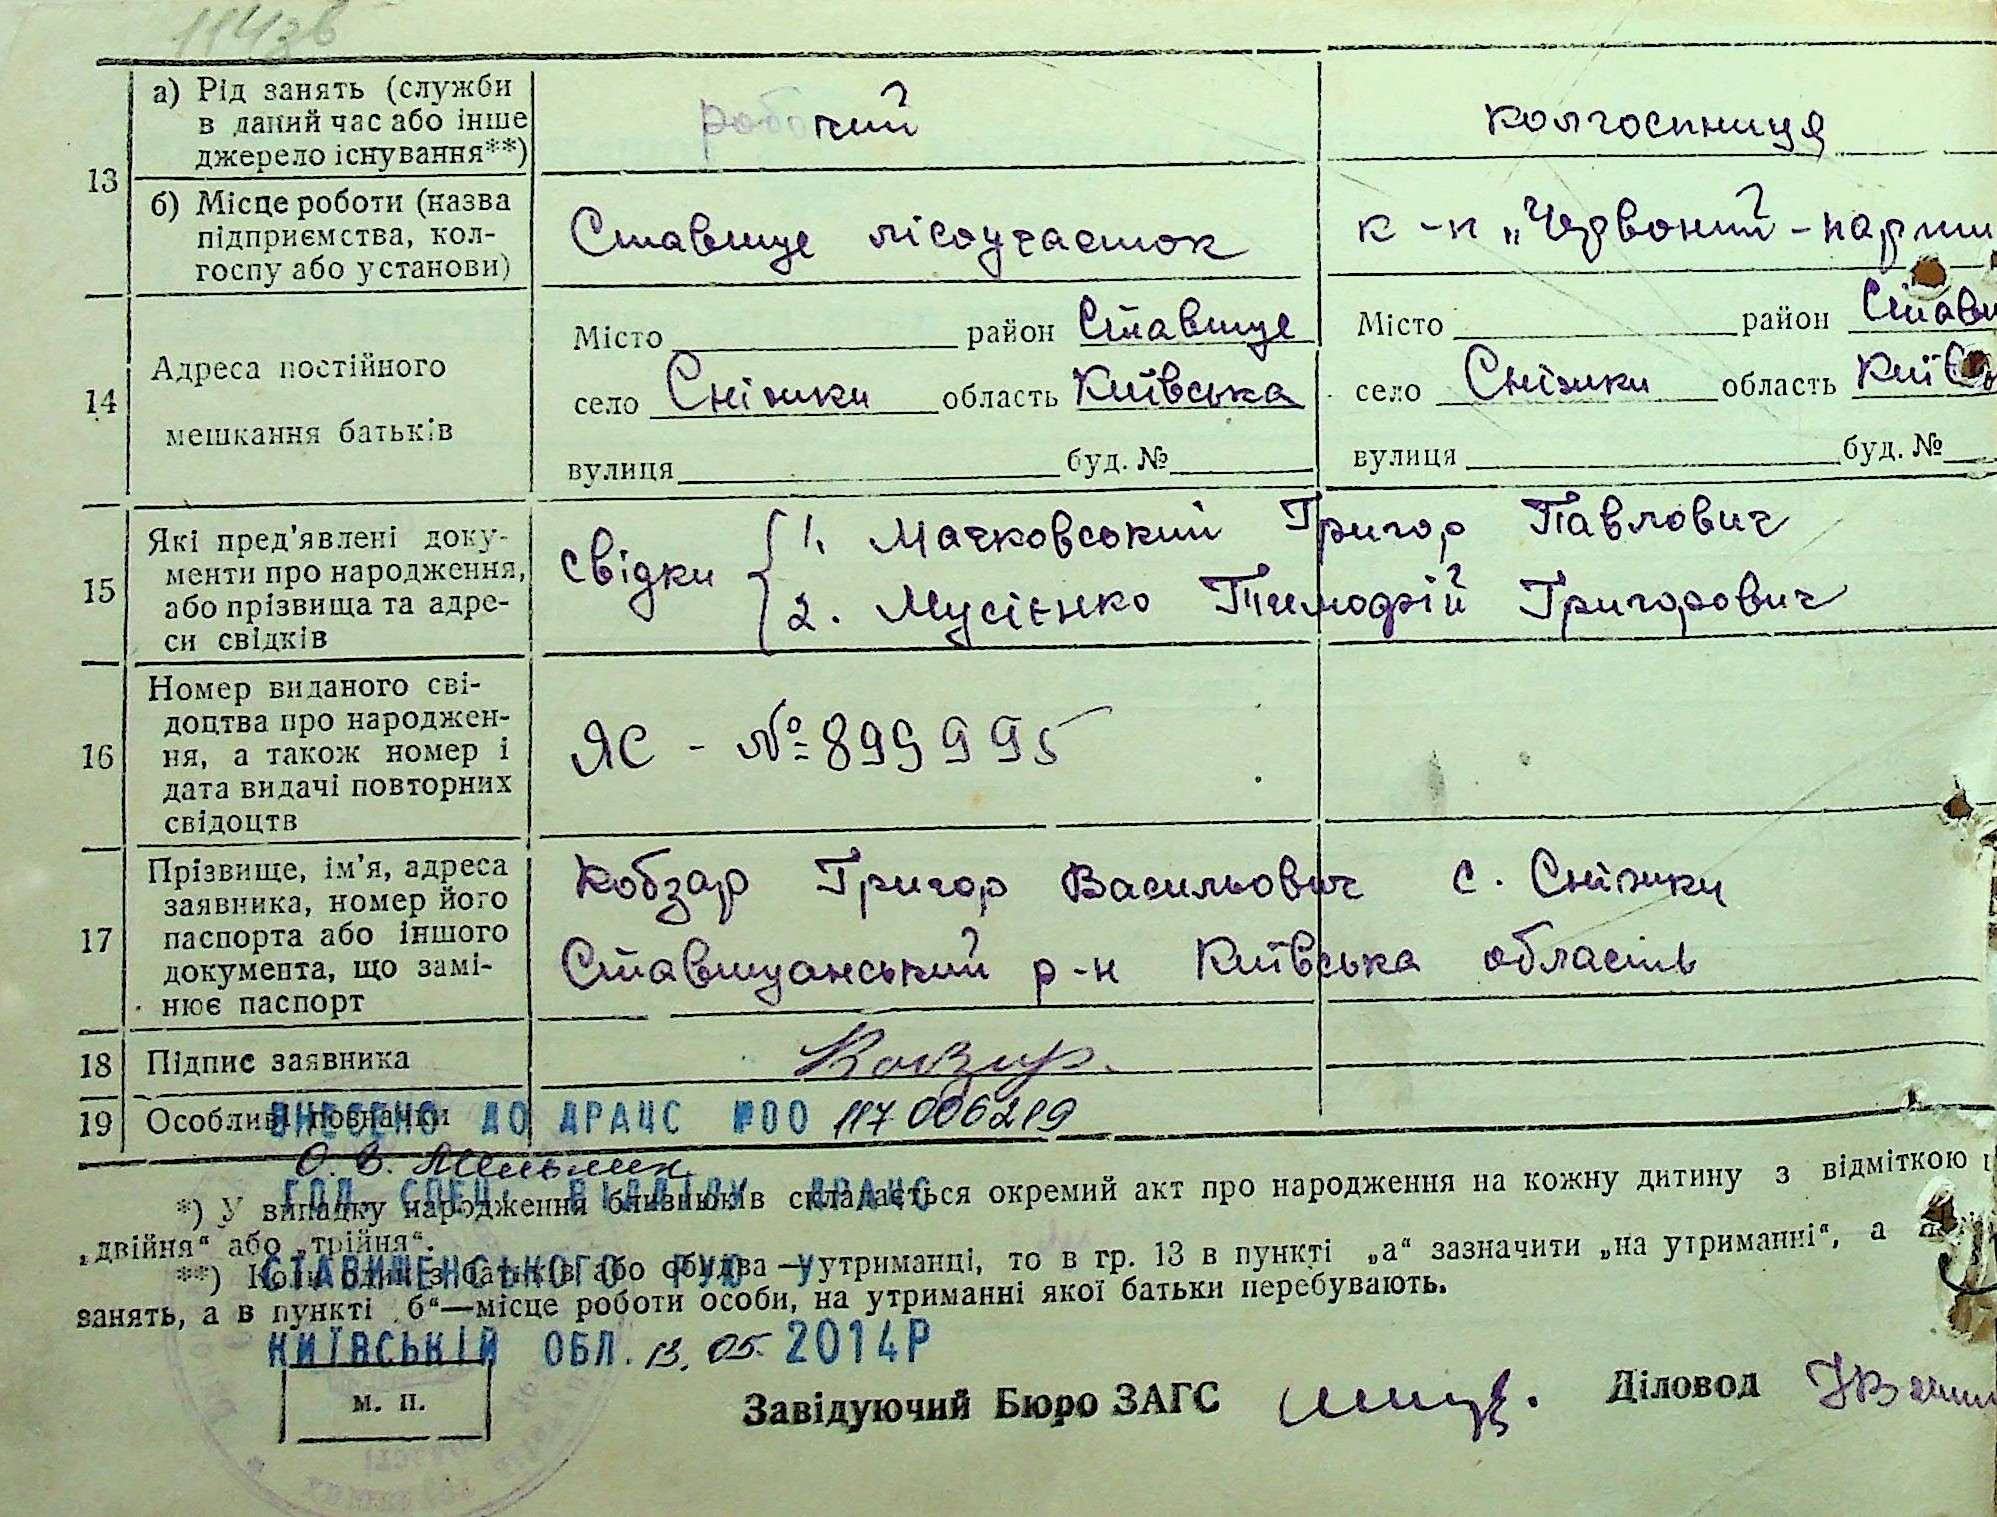 114зв
13 а) Рід занять (служби в даний час або інше джерело існування**) робочий колгоспниця
б) Місце роботи (назва підприємства, колгоспу або установи) Ставище лісоучасток к-п „Червоний-парти
14 Адреса постійного мешкання батьків
Місто район Ставище Місто район Стави
село Сніжки область Київська село Сніжки область Київ
вулиця буд. № вулиця буд. №
15 Які пред'явлені документи про народження, або прізвища та адреси свідків
свідки 1. Мачковський Григор Павлович
2. Мусієнко Тимофій Григорович
16 Номер виданого свідоцтва про народження, а також номер і дата видачі повторних свідоцтв
ЯС - № 899995
17 Прізвище, ім'я, адреса заявника, номер його паспорта або іншого документа, що замінює паспорт
Кобзар Григор Васильович с. Сніжки
Ставищанський р-н Київська область
18 Підпис заявника Кобзар.
19 Особливі позначки
ВНЕСЕНО ДО ДРАЦС №00 117006219
О. В.
ГОЛ. СПЕЦ. ВІДДІЛУ ДРАЦС
*) У випадку народження близнюків складається окремий акт про народження на кожну дитину з відміткою
„двійня“ або „трійня“.
СТАВИЩЕНСЬКОГО РУЮ У
**) Коли один з батьків або обидва — утриманці, то в гр. 13 в пункті „а“ зазначити „на утриманні“, а
занять, а в пункті „б“—місце роботи особи, на утриманні якої батьки перебувають.
КИЇВСЬКІЙ ОБЛ. 13.05.2014Р
м. п.
Завідуючий Бюро ЗАГС Діловод